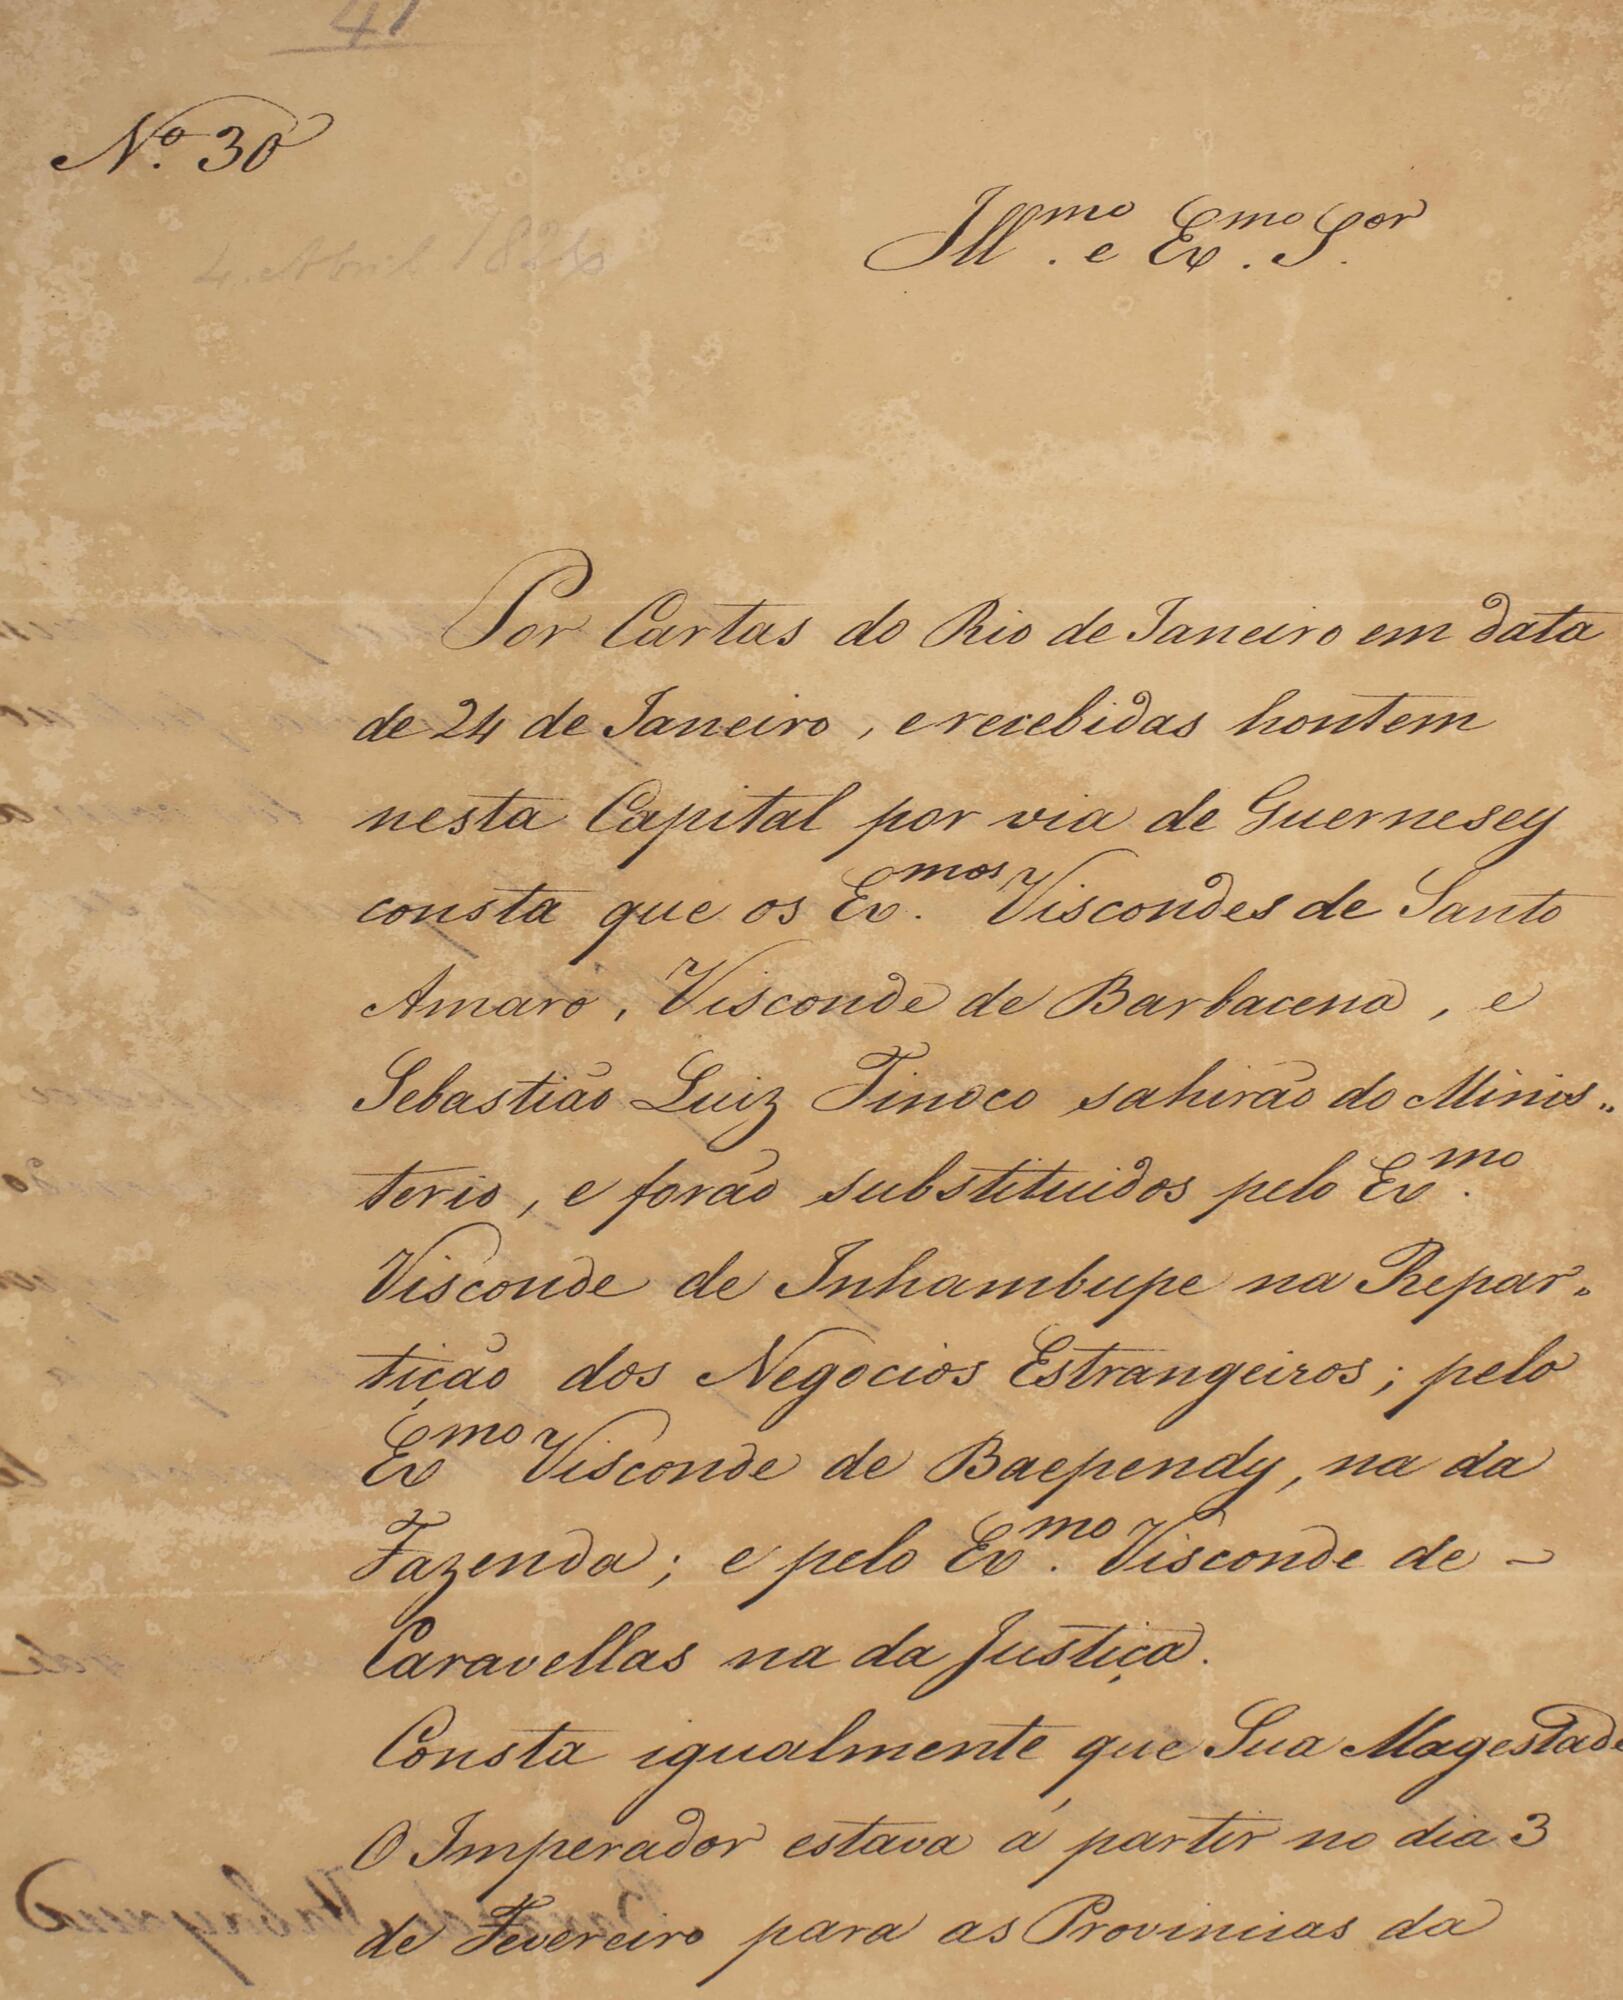 41
Nº 30
4. Abril 1826
Ill.mo e Ex.mo S.or
Por Cartas do Rio de Janeiro em data
de 24 de Janeiro, e recebidas hontem
nesta Capital por via de Guernesey
consta que os Ex.mos Viscondes de Santo
Amaro, Visconde de Barbacena, e
Sebastião Luiz Tinoco sahirão do Minis=
terio, e forão substituidos pelo Ex.mo
Visconde de Inhambupe na Repar=
tição dos Negocios Estrangeiros; pelo
Exmo Visconde de Baependy, na da
Fazenda; e pelo Ex.mo Visconde de -
Caravellas na da Justiça.
Consta igualmente que Sua Magestade
O Imperador estava á partir no dia 3
de Fevereiro para as Provincias da